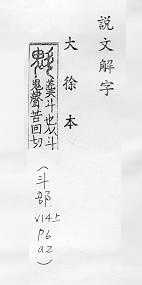 說文解字
大徐本
魁
羹斗也从斗
鬼聲苦回切
(斗部 V14上 P6 a2)